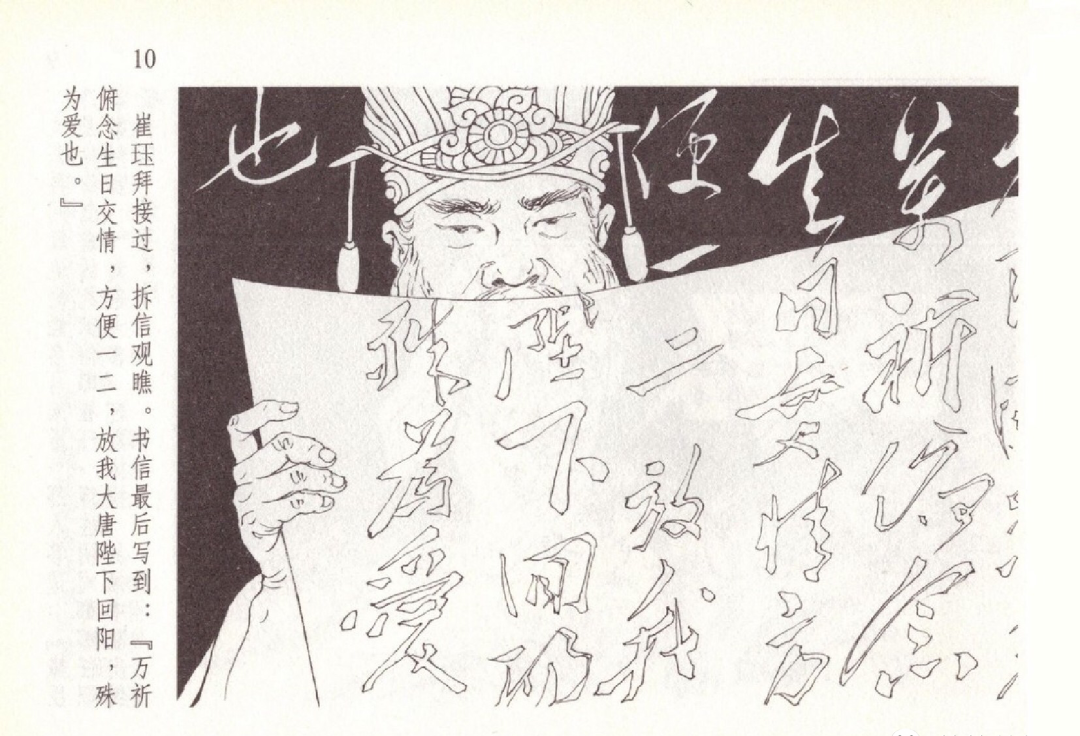 10
崔珏拜接过，拆信观瞧。书信最后写到：『万祈
俯念生日交情，方便一二，放我大唐陛下回阳，殊
为爱也。』
万祈俯念
生日交情方
便一二放我
陛下回阳
殊为爱
也